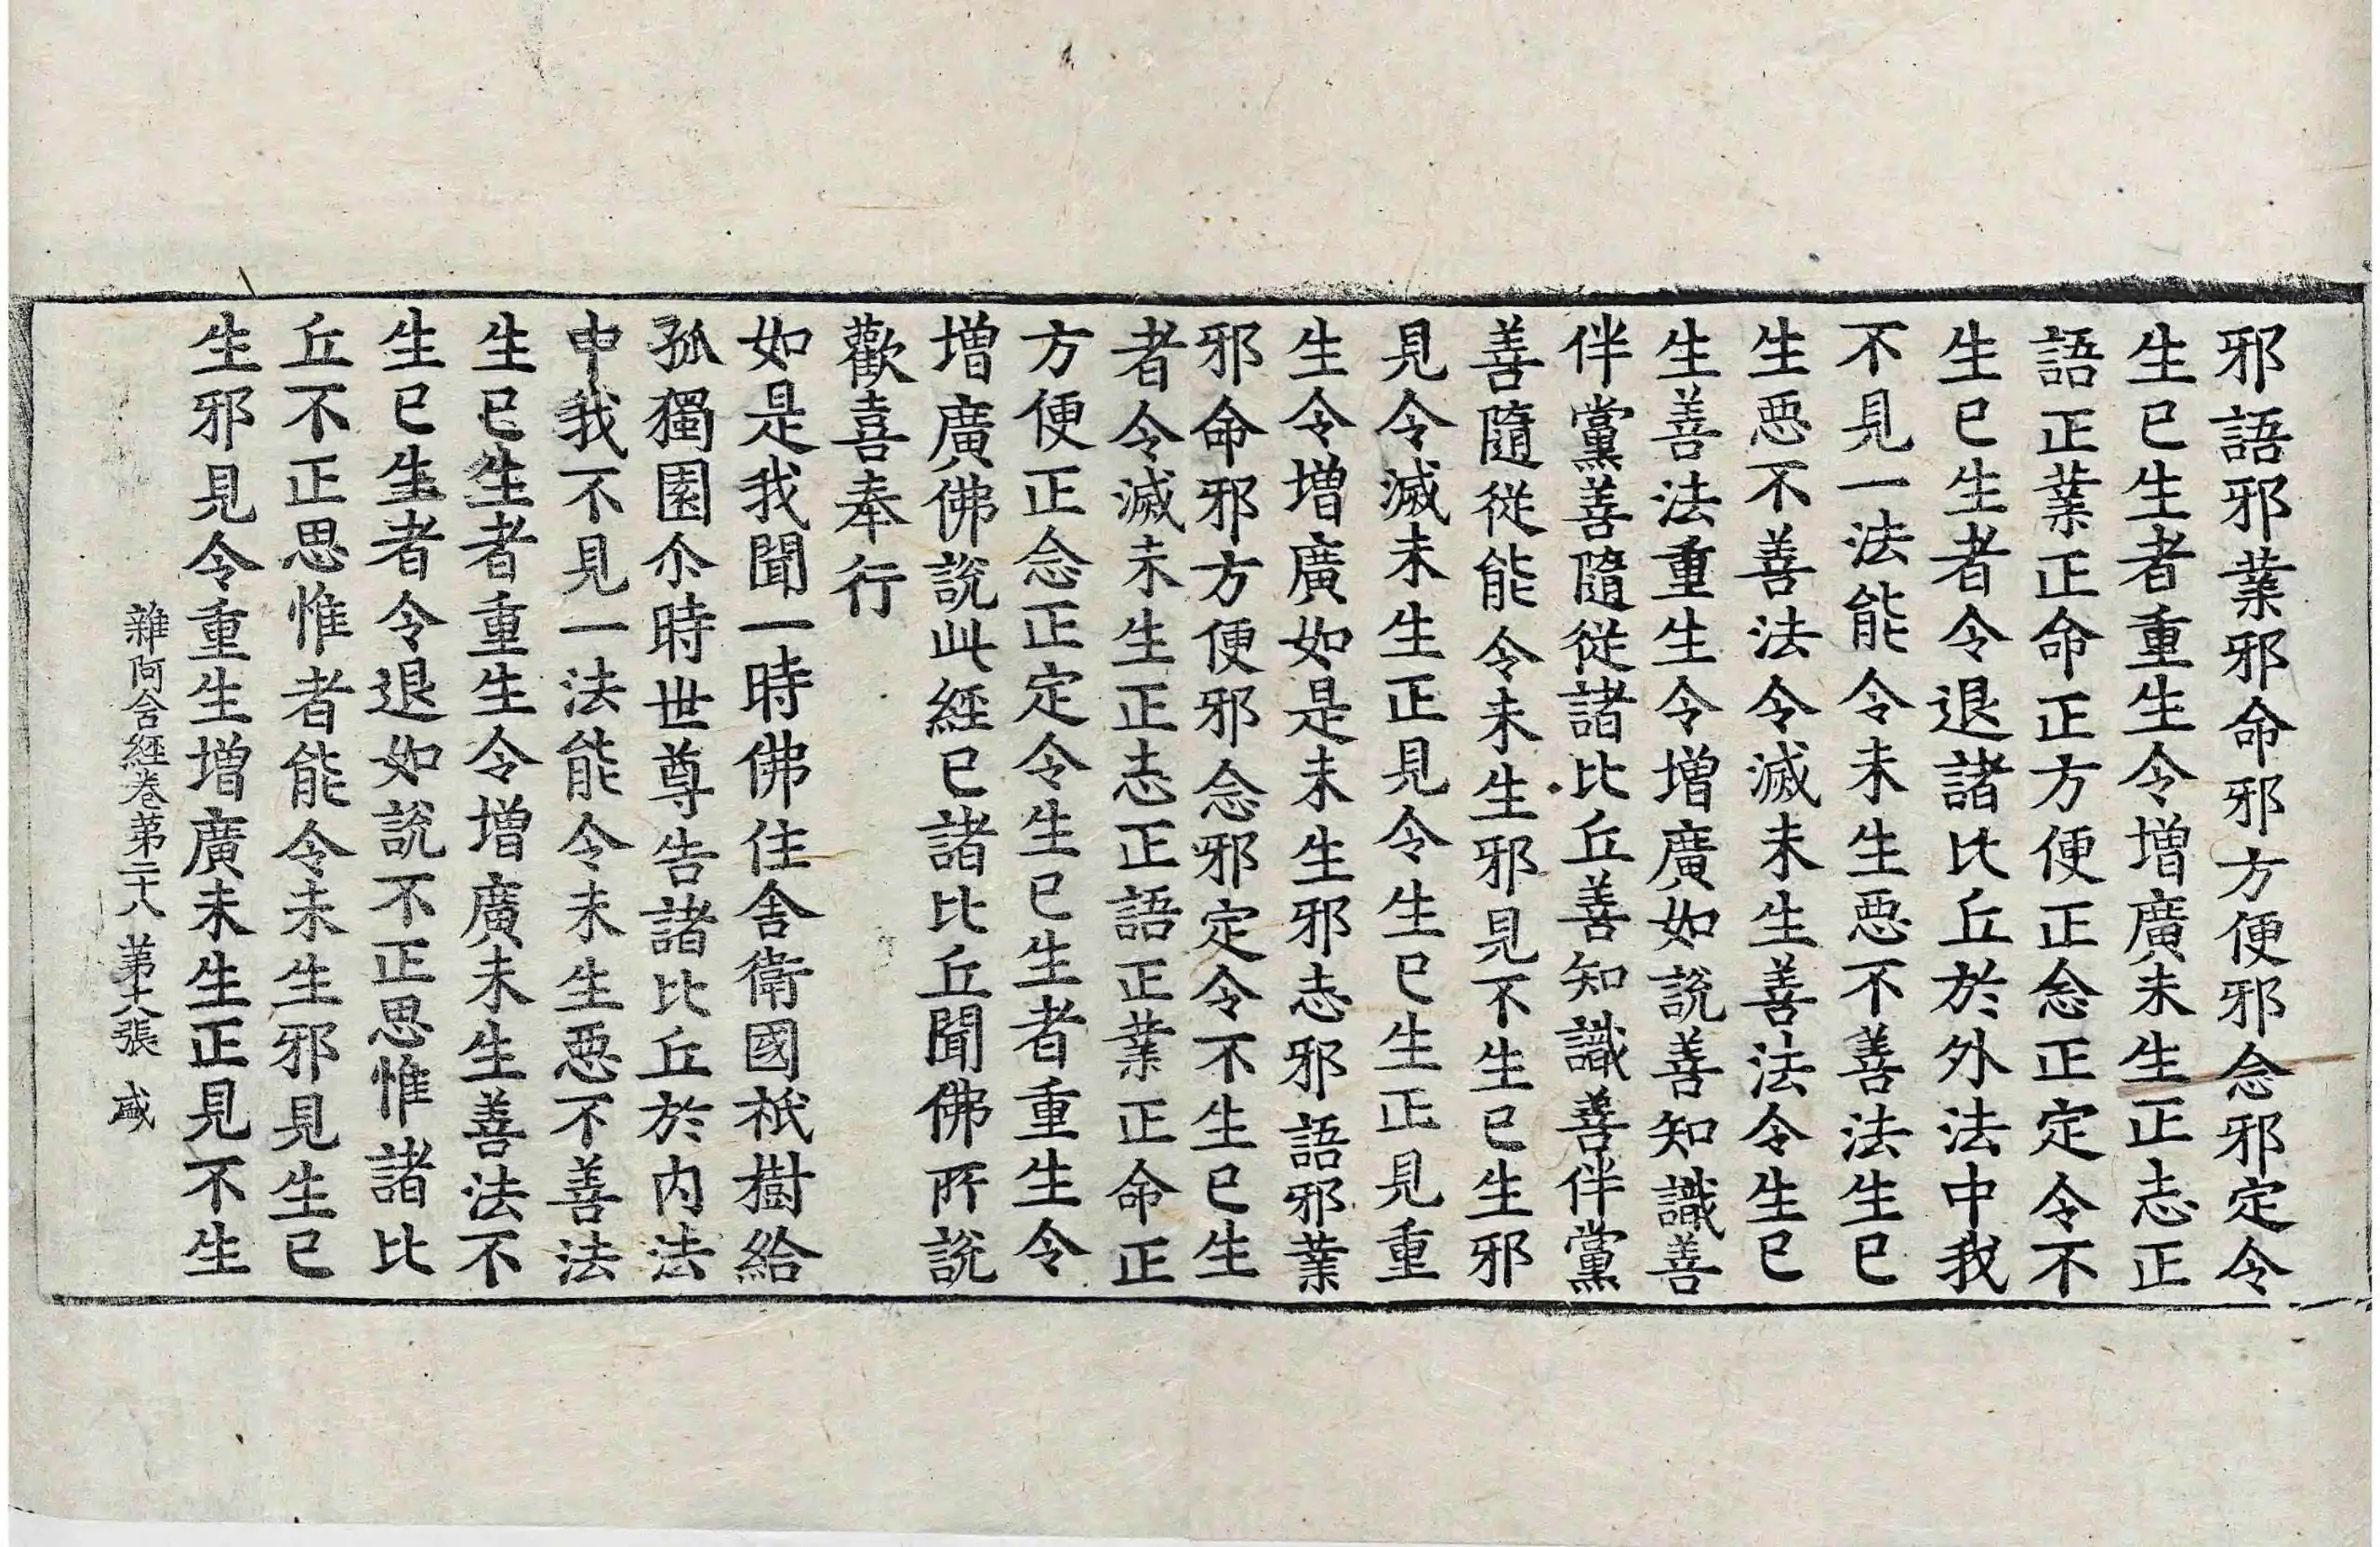 邪語邪業邪命邪方便邪念邪定令
生已生者重生令增廣未生正志正
語正業正命正方便正念正定令不
生已生者令退諸比丘於外法中我
不見一法能令未生惡不善法生已
生惡不善法令滅未生善法令生已
生善法重生令增廣如說善知識善
伴黨善隨從諸比丘善知識善伴黨
善隨從能令未生邪見不生已生邪
見令滅未生正見令生已生正見重
生令增廣如是未生邪志邪語邪業
邪命邪方便邪念邪定令不生已生
者令滅未生正志正語正業正命正
方便正念正定令生已生者重生令
增廣佛說此經已諸比丘聞佛所說
歡喜奉行
如是我聞一時佛住舍衛國祇樹給
孤獨園尒時世尊告諸比丘於內法
中我不見一法能令未生惡不善法
生已生者重生令增廣未生善法不
生已生者令退如說不正思惟諸比
丘不正思惟者能令未生邪見生已
生邪見令重生增廣未生正見不生
雜阿含經卷第二十八 第十六張 咸